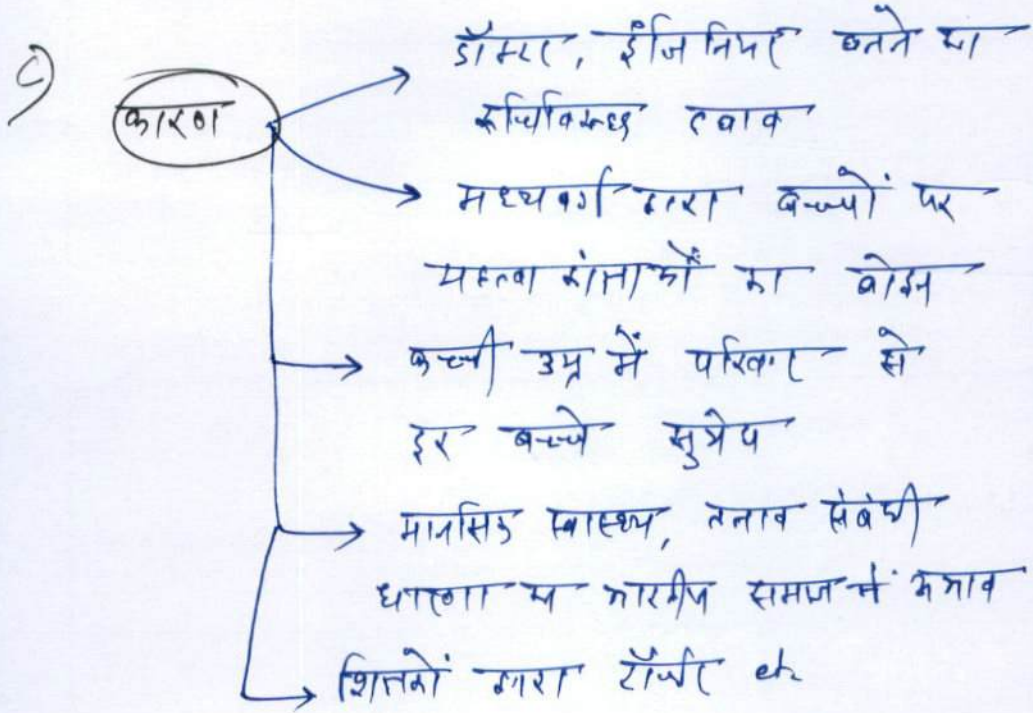 c)
कारण
डॉक्टर, इंजिनियर बनने का
रुचिविरुद्ध दवाव
मध्यवर्ग द्वारा बच्चों पर
महत्वाकांक्षाओं का बोझ
कच्ची उम्र में परिवार से
दूर बच्चे
मानसिक स्वास्थ्य, तनाव संबंधी
धारणा का भारतीय समाज में अभाव
शिक्षकों द्वारा टॉर्चर etc